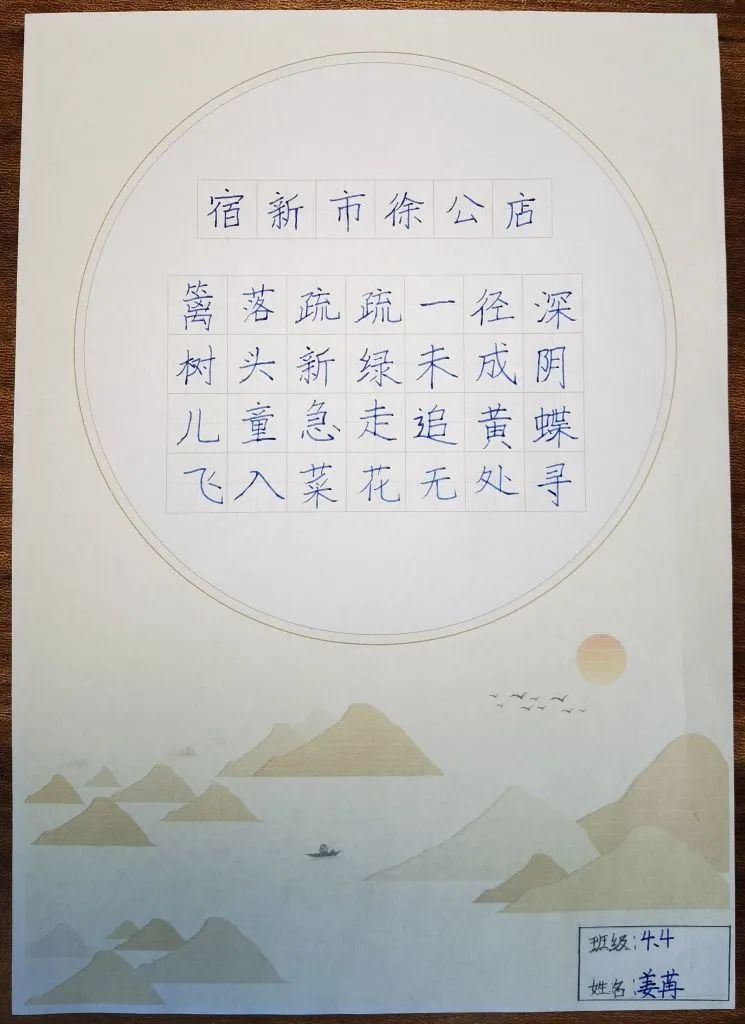 宿新市徐公店
篱落疏疏一径深
树头新绿未成阴
儿童急走追黄蝶
飞入菜花无处寻
班级:4.4
姓名:姜苒